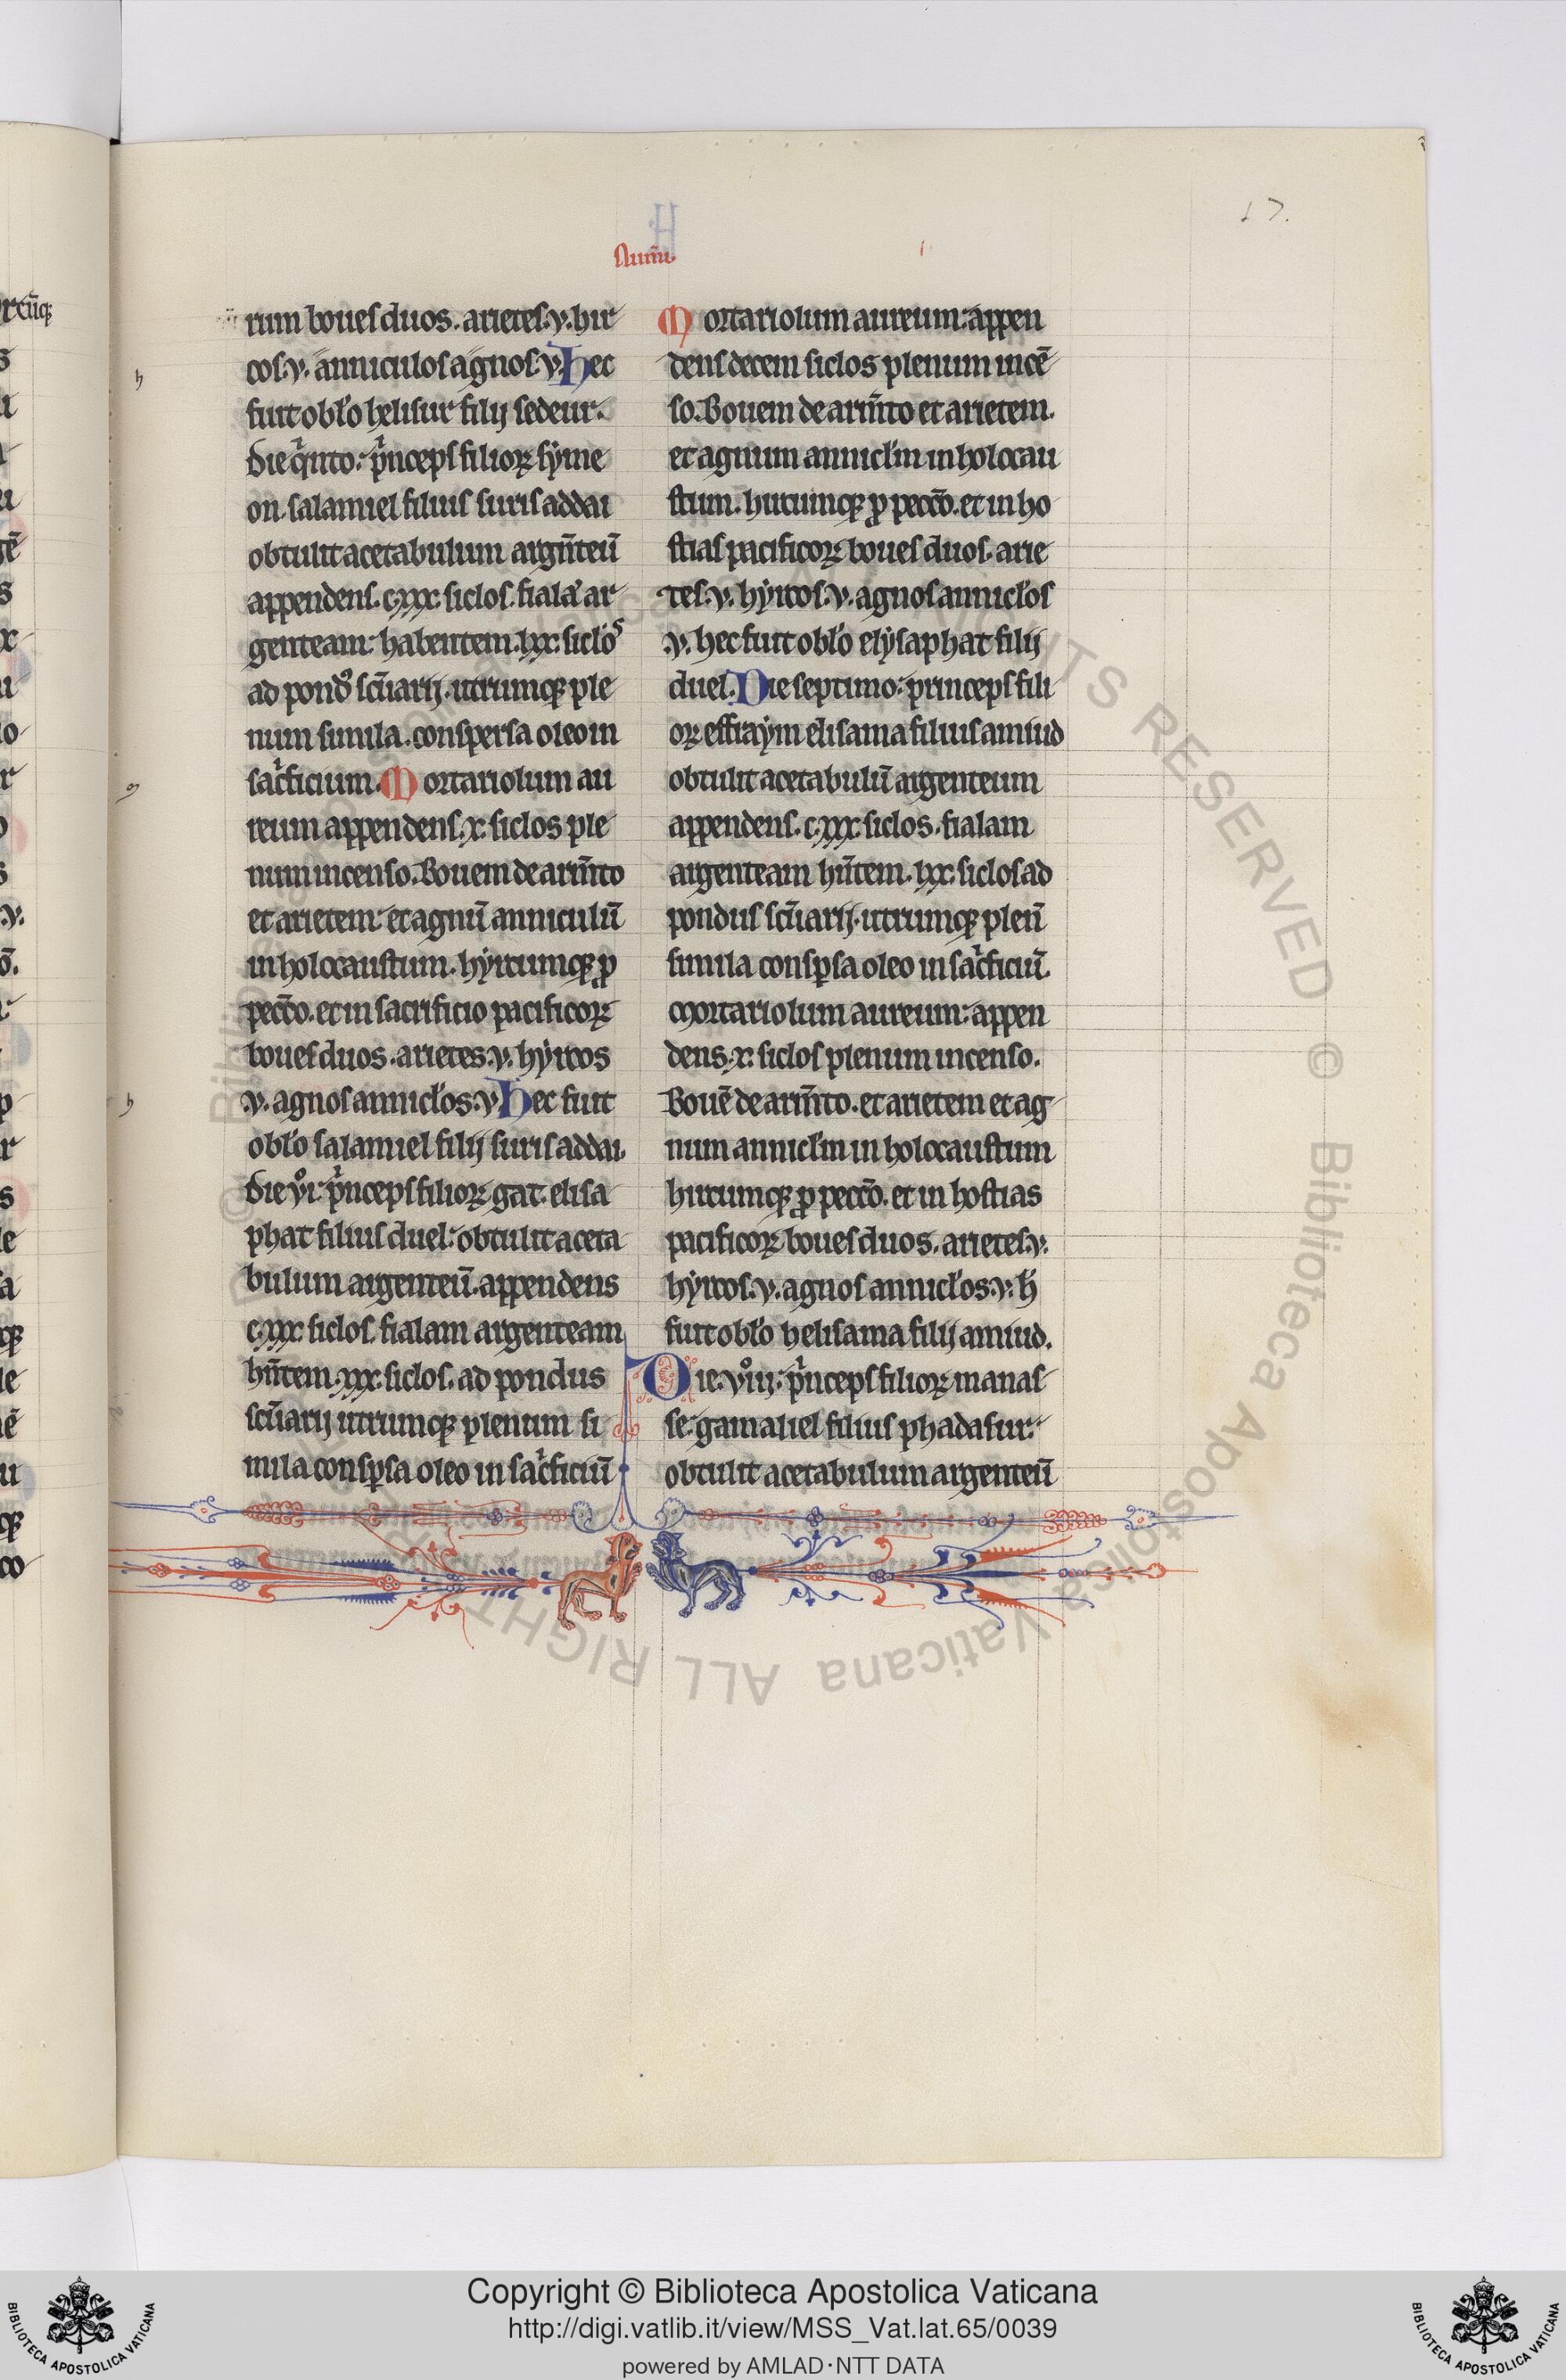 17.
Num̄.
rum boues duos. arietes. v. hir
cos. v. anniculos agnos. v. Hec
fuit obl̓o helisur filij sedeur.
Die qͥnto: pͥnceps filioꝝ syme
on. salamiel filius surisaddai
obtulit acetabulum argn̄teū
appendens. c.xxx. siclos. fialā ar
genteam: habentem. lxx. siclos
ad pond᷒ scūarij. utrumqꝫ ple
num simila. conspersa oleo in
sacͥficium. Mortariolum au
reum appendens. x. siclos ple
num incenso. Bouem de arm̄to
et arietem et agnū anniculū
in holocaustum. hyrcumqꝫ ꝓ
pecc̄o. et in sacrificio pacificoꝝ
boues duos. arietes. v. hyrcos
v. agnos annicl̓os. v. Hec fuit
obl̓o salamiel filij surisaddai.
Die vͦi. pͥnceps filioꝝ gat. elisa
phat filius duel: obtulit aceta
bulum argenteū. appendens
c.xxx. siclos. fialam argenteam
hn̄tem. xxx. siclos. ad pondus
scūarij utrumqꝫ plenum si
mila consꝑsa oleo in sacͥficiū
Mortariolum aureum: appen
dens decem siclos plenum incē
so. Bouem de arm̄to et arietem.
et agnum annicl̓m in holocau
stum. hircumqꝫ ꝓ pecc̄o. et in ho
stias pacificoꝝ boues duos. arie
tes. v. hyrcos. v. agnos annicl̓os
v. hec fuit obl̓o elysaphat filij
duel. Die septimo: princeps fili
oꝝ effraym elisama filius amiud
obtulit acetabulū argenteum
appendens. c.xxx. siclos. fialam
argenteam hn̄tem. lxx. siclos ad
pondus scūarij. utrumqꝫ plenū
simila consꝑsa oleo in sacͥficiū.
Mortariolum aureum: appen
dens. x. siclos plenum incenso.
Bouē de arm̄to. et arietem et ag
num annicl̓m in holocaustum
hircumqꝫ ꝓ pecc̄o. et in hostias
pacificoꝝ boues duos. arietes. v.
hyrcos. v. agnos annicl̓os. v. h̓
fuit obl̓o helisama filij amiud.
Die. vͦiij. pͥnceps filioꝝ manas
se. gamaliel filius phadasur.
obtulit acetabulum argenteū
© Biblioteca Apostolica Vaticana ALL RIGHTS RESERVED
Copyright © Biblioteca Apostolica Vaticana
http://digi.vatlib.it/view/MSS_Vat.lat.65/0039
powered by AMLAD·NTT DATA
BIBLIOTECA APOSTOLICA VATICANA
BIBLIOTECA APOSTOLICA VATICANA